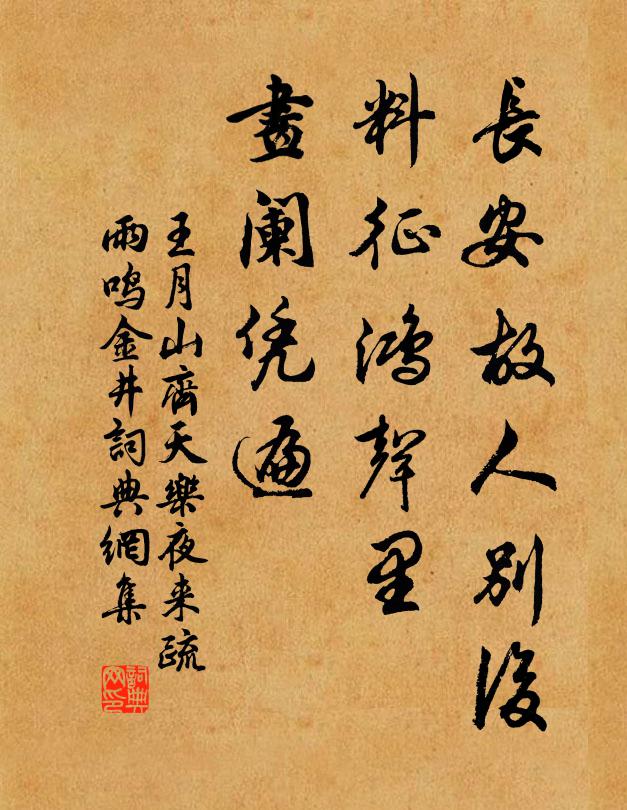 長安故人別後
料征鴻聲里
畫阑凭遍
王月山齊天樂夜来疏
雨鸣金井詞典網集
詞典网印